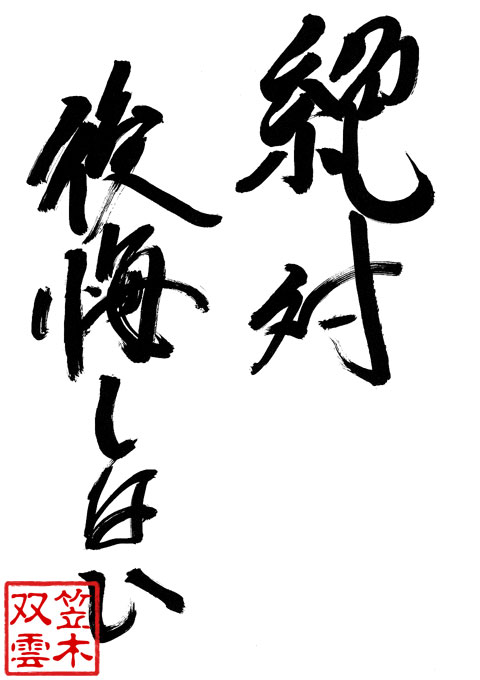 絶対
後悔しなひ
笠木
双雲